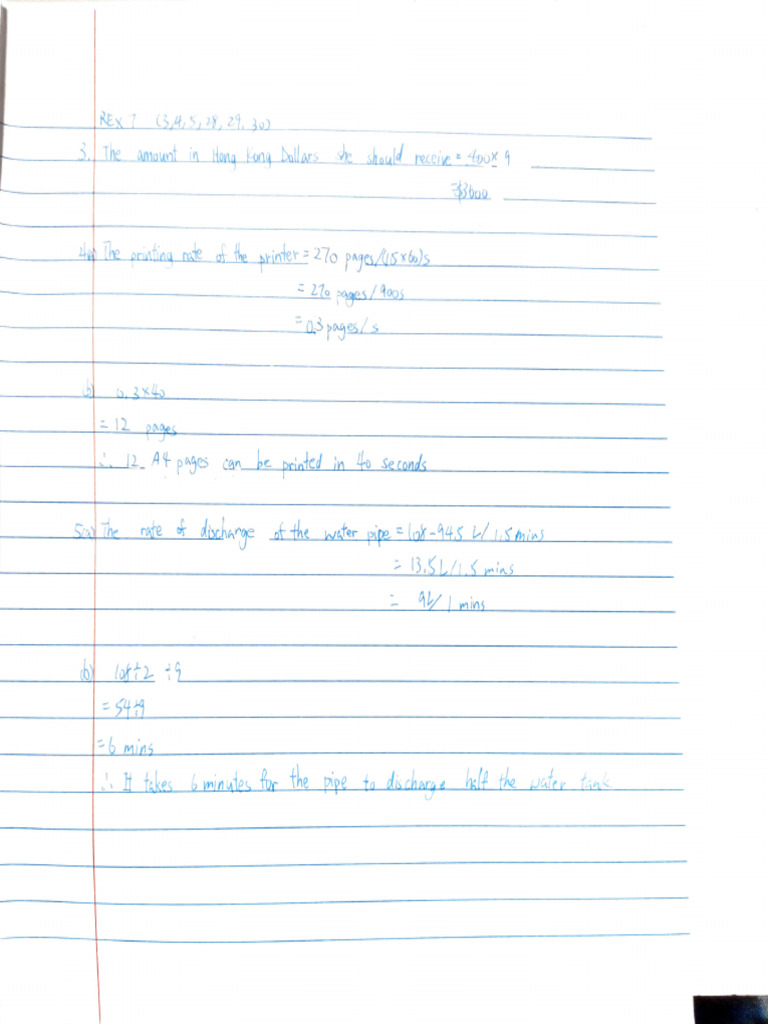 REx 7 (3,4,5,28,29,30)
3. The amount in Hong Kong Dollars she should receive = 400 × 9
= $3600
4(a) The printing rate of the printer = 270 pages/(15×60)s
= 270 pages/900s
= 0.3 pages/s
(b) 0.3×40
= 12 pages
∴ 12 A4 pages can be printed in 40 seconds
5(a) The rate of discharge of the water pipe = 108-94.5 L/1.5 mins
= 13.5L/1.5 mins
= 9L/1 mins
(b) 108÷2 ÷9
= 54÷9
= 6 mins
∴ It takes 6 minutes for the pipe to discharge half the water tank